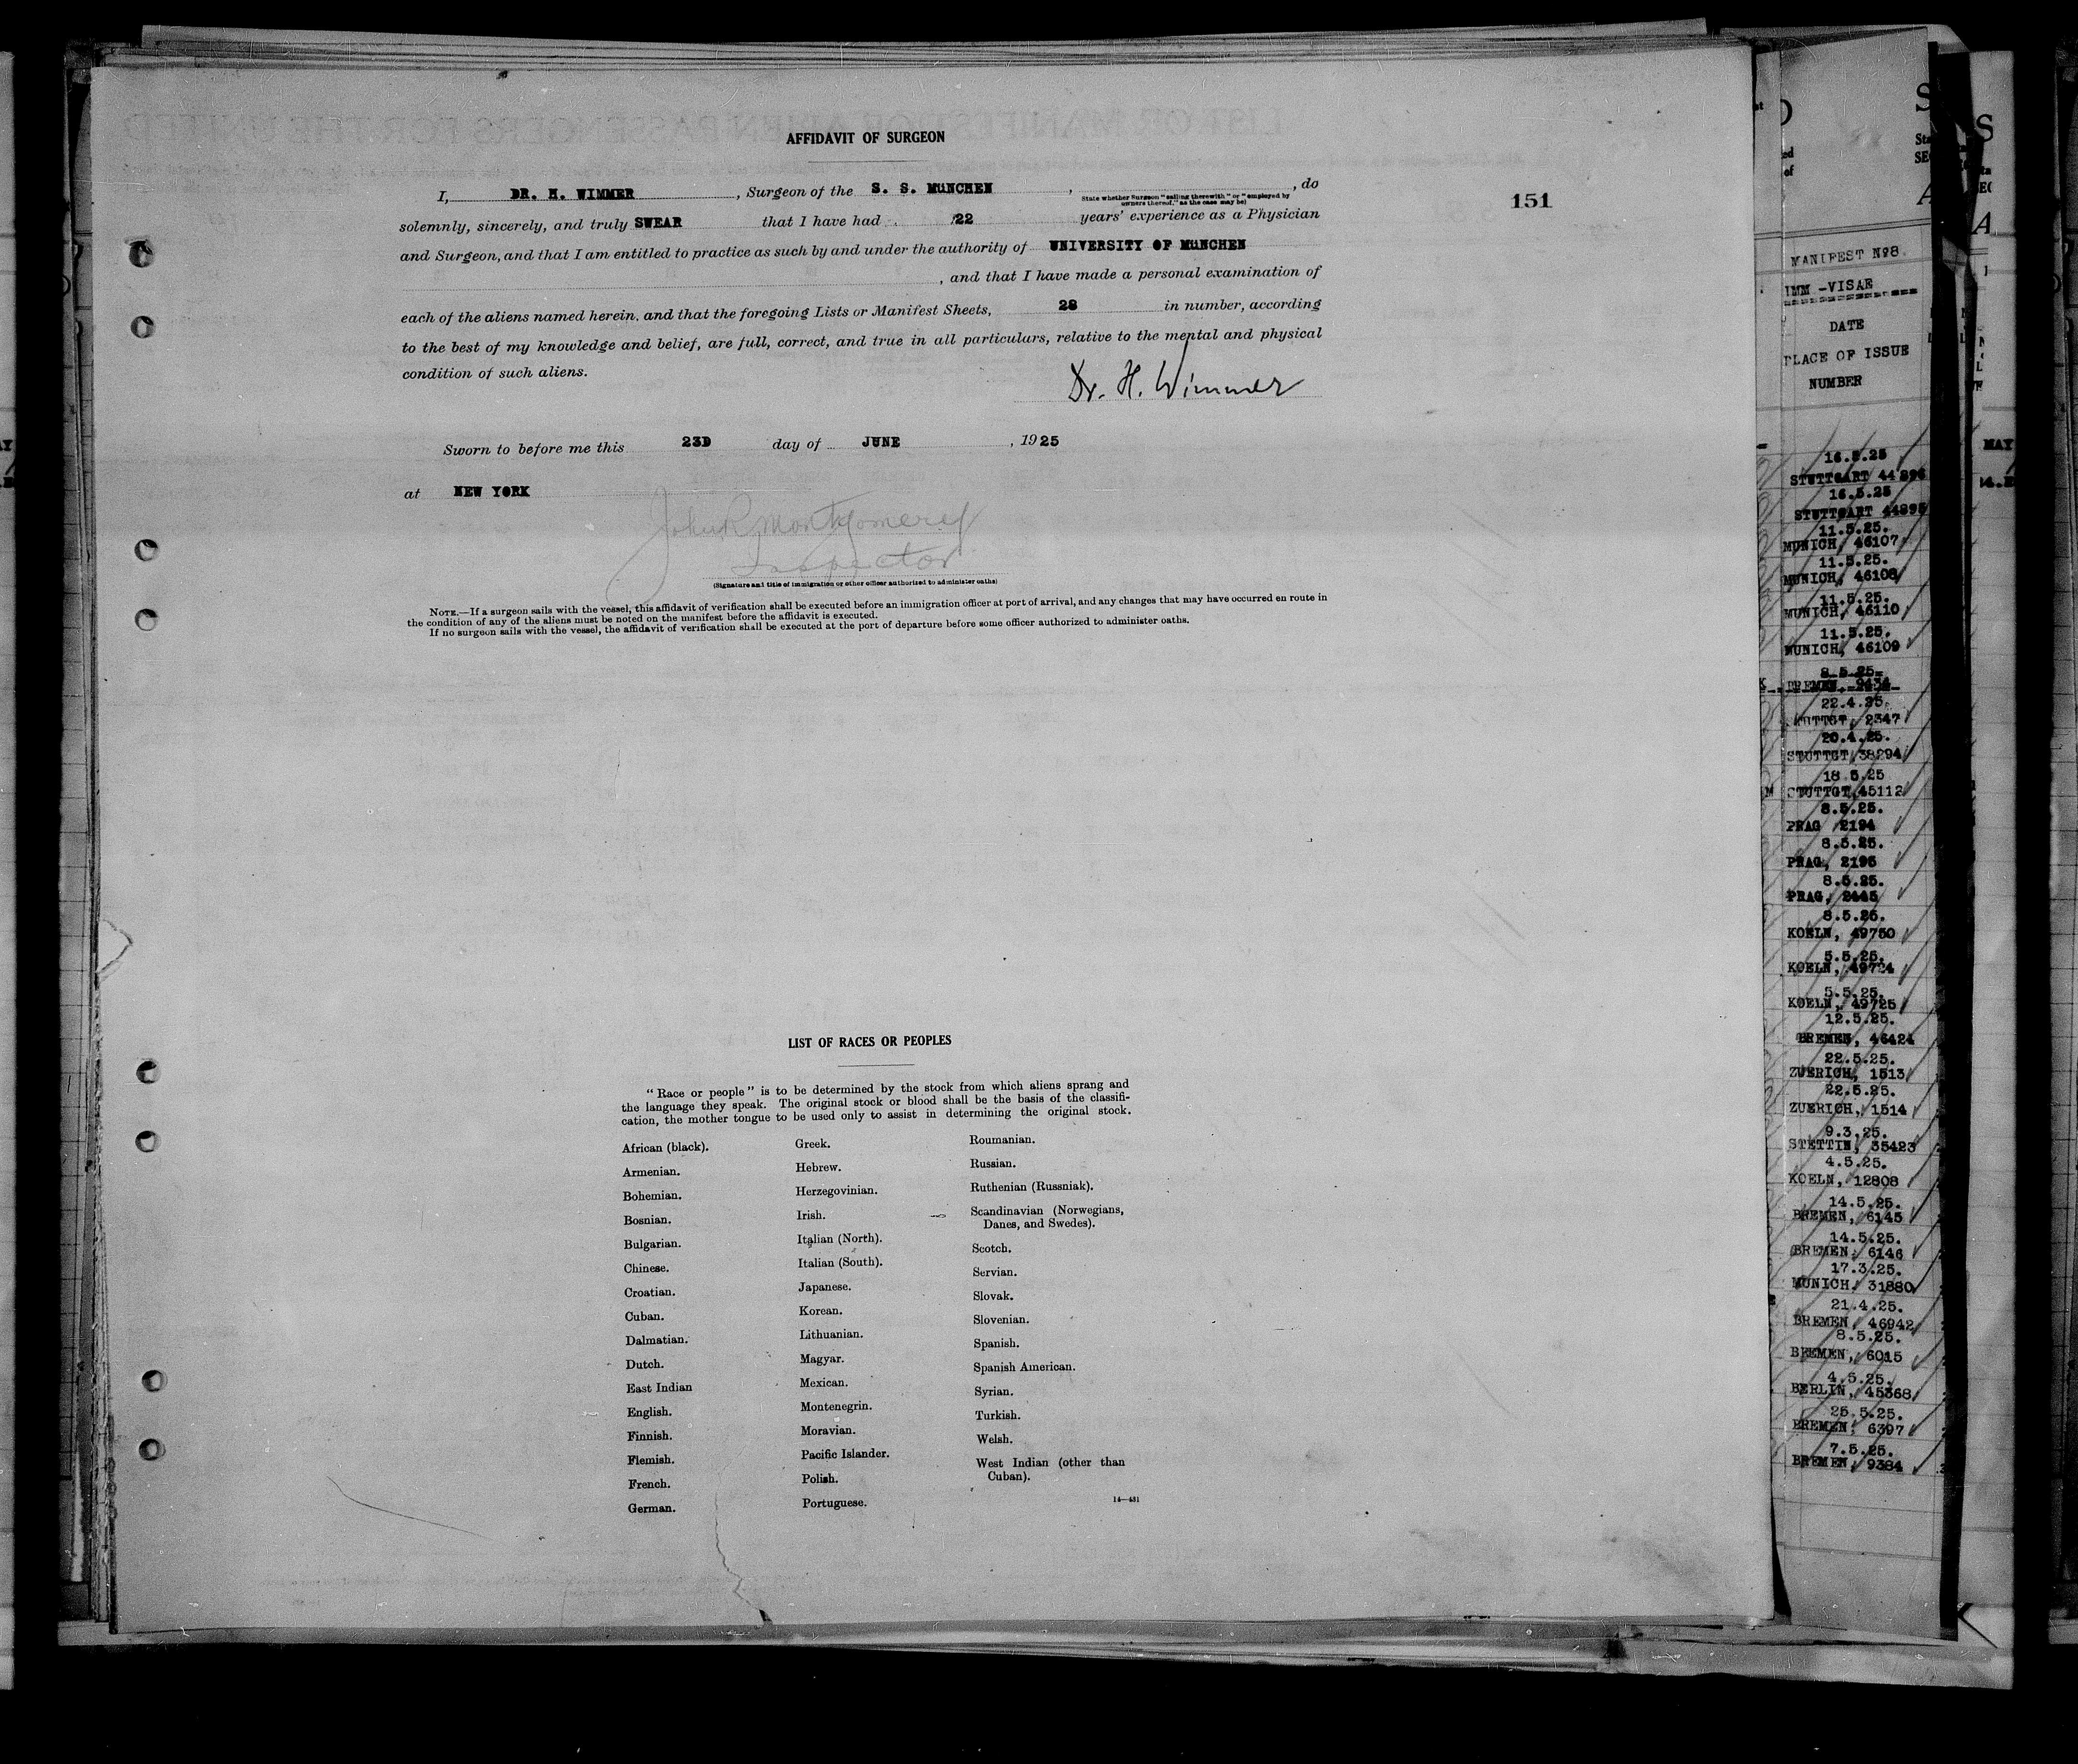 AFFIDAVIT OF SURGEON
I, DR. H. WIMMER, Surgeon of the S. S. MüNCHEN, , do
State whether Surgeon "sailing therewith" or "employed by
owners thereof," as the case may be)
151
solemnly, sincerely, and truly SWEAR that I have had 22 years' experience as a Physician
and Surgeon, and that I am entitled to practice as such by and under the authority of UNIVERSITY OF MüNCHEN
, and that I have made a personal examination of
each of the aliens named herein, and that the foregoing Lists or Manifest Sheets, 28 in number, according
to the best of my knowledge and belief, are full, correct, and true in all particulars, relative to the mental and physical
condition of such aliens.
Dr. H. Wimmer
Sworn to before me this 23D day of JUNE, 1925
at NEW YORK
John R Montgomery
Inspector
(Signature and title of immigration or other officer authorized to administer oaths)
NOTE.—If a surgeon sails with the vessel, this affidavit of verification shall be executed before an immigration officer at port of arrival, and any changes that may have occurred en route in
the condition of any of the aliens must be noted on the manifest before the affidavit is executed.
If no surgeon sails with the vessel, the affidavit of verification shall be executed at the port of departure before some officer authorized to administer oaths.
LIST OF RACES OR PEOPLES
"Race or people" is to be determined by the stock from which aliens sprang and
the language they speak. The original stock or blood shall be the basis of the classifi-
cation, the mother tongue to be used only to assist in determining the original stock.
African (black).
Armenian.
Bohemian.
Bosnian.
Bulgarian.
Chinese.
Croatian.
Cuban.
Dalmatian.
Dutch.
East Indian
English.
Finnish.
Flemish.
French.
German.
Greek.
Hebrew.
Herzegovinian.
Irish.
Italian (North).
Italian (South).
Japanese.
Korean.
Lithuanian.
Magyar.
Mexican.
Montenegrin.
Moravian.
Pacific Islander.
Polish.
Portuguese.
Roumanian.
Russian.
Ruthenian (Russniak).
Scandinavian (Norwegians,
Danes, and Swedes).
Scotch.
Servian.
Slovak.
Slovenian.
Spanish.
Spanish American.
Syrian.
Turkish.
Welsh.
West Indian (other than
Cuban).
14—431
MANIFEST Nº8.
IMM -VISAE
DATE
PLACE OF ISSUE
NUMBER
16.5.25
STUTTGART 44896
16.5.25
STUTTGART 44895
11.5.25.
MUNICH, 46107
11.5.25.
MUNICH, 46108
11.5.25.
MUNICH, 46110
11.5.25.
MUNICH, 46109
8.5.25.
BREMEN, 9434
22.4.25.
STUTTGT, 2347
20.4.25.
STUTTGT, 38294
18 5.25
STUTTGT, 45112
8.5.25.
PRAG 2194
8.5.25.
PRAG, 2195
8.5.25.
PRAG, 2445
8.5.25.
KOELN, 49750
5.5.25.
KOELN, 49724
5.5.25.
KOELN, 49725
12.5.25.
BREMEN, 46424
22.5.25.
ZUERICH, 1513
22.5.25.
ZUERICH, 1514
9.3.25.
STETTIN, 35423
4.5.25.
KOELN, 12808
14.5.25.
BREMEN, 6145
14.5.25.
BREMEN, 6146
17.3.25.
MUNICH, 31880
21.4.25.
BREMEN, 46942
8.5.25.
BREMEN, 6015
4.5.25.
BERLIN, 45368
25.5.25.
BREMEN, 6397
7.5.25.
BREMEN, 9384
MAY